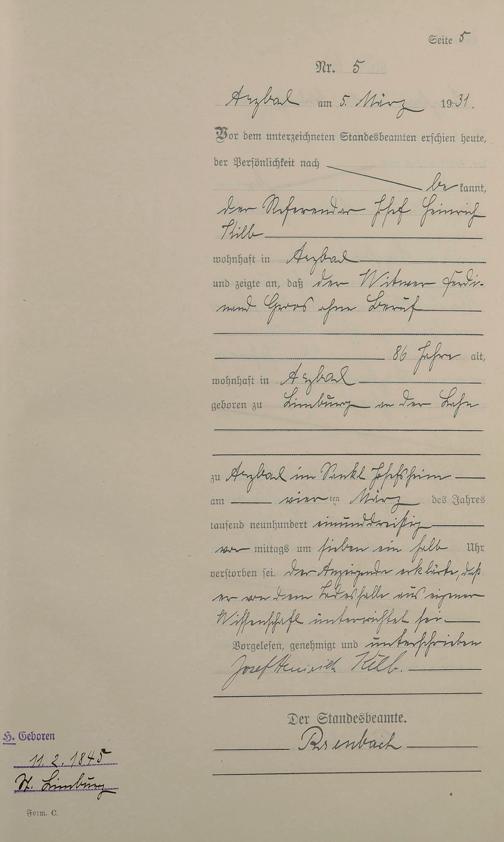 Seite 5
Nr. 5
Arzbach am 5. März 1931.
Vor dem unterzeichneten Standesbeamten erschien heute,
der Persönlichkeit nach
be kannt,
der Referendar Josef Heinrich
Kilb
wohnhaft in Arzbach
und zeigte an, daß der Witwer Ferdi-
nand Gros ohne Beruf
86 Jahre alt,
wohnhaft in Arzbach
geboren zu Limburg an der Lahn
zu Arzbach im Sankt Josefsheim
am vier ten März des Jahres
tausend neunhundert einunddreißig
vor mittags um sieben ein halb Uhr
verstorben sei. Der Anzeigende erklärte, daß
er von dem Todesfalle aus eigener
Wissenschaft unterrichtet sei
Vorgelesen, genehmigt und unterschrieben
Josef Heinrich Kilb.
Der Standesbeamte.
H. Geboren
11.2.1845
St. Limburg
Form. C.